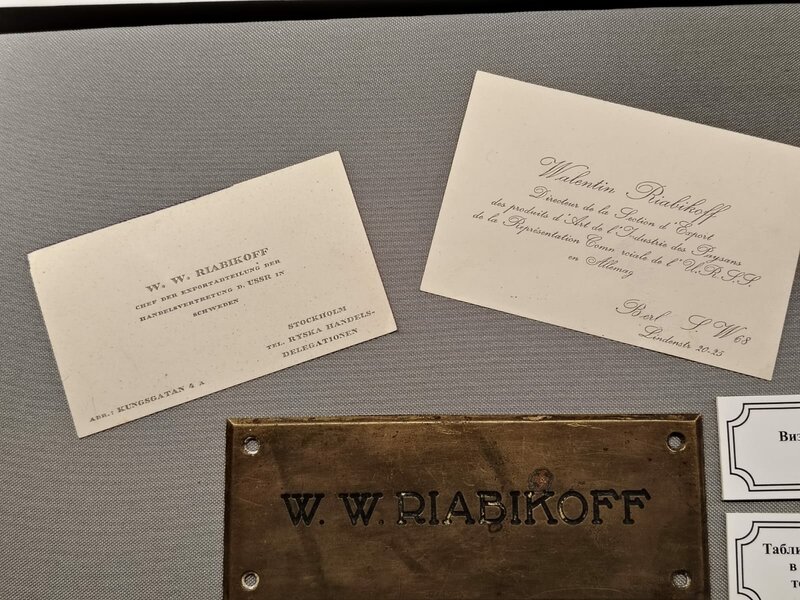 W. W. RIABIKOFF
CHEF DER EXPORTABTEILUNG DER
HANDELSVERTRETUNG D. USSR IN
SCHWEDEN
STOCKHOLM
TEL. RYSKA HANDELS-
DELEGATIONEN
ADR.: KUNGSGATAN 4 A
Walentin Riabikoff
Directeur de la Section d'Export
des produits d'Art de l'Industrie des Paysans
de la Représentation de l'U.R.S.S.
en
S.W 68
Lindenstr 20-25
W. W. RIABIKOFF
Виз
Табли
в
то